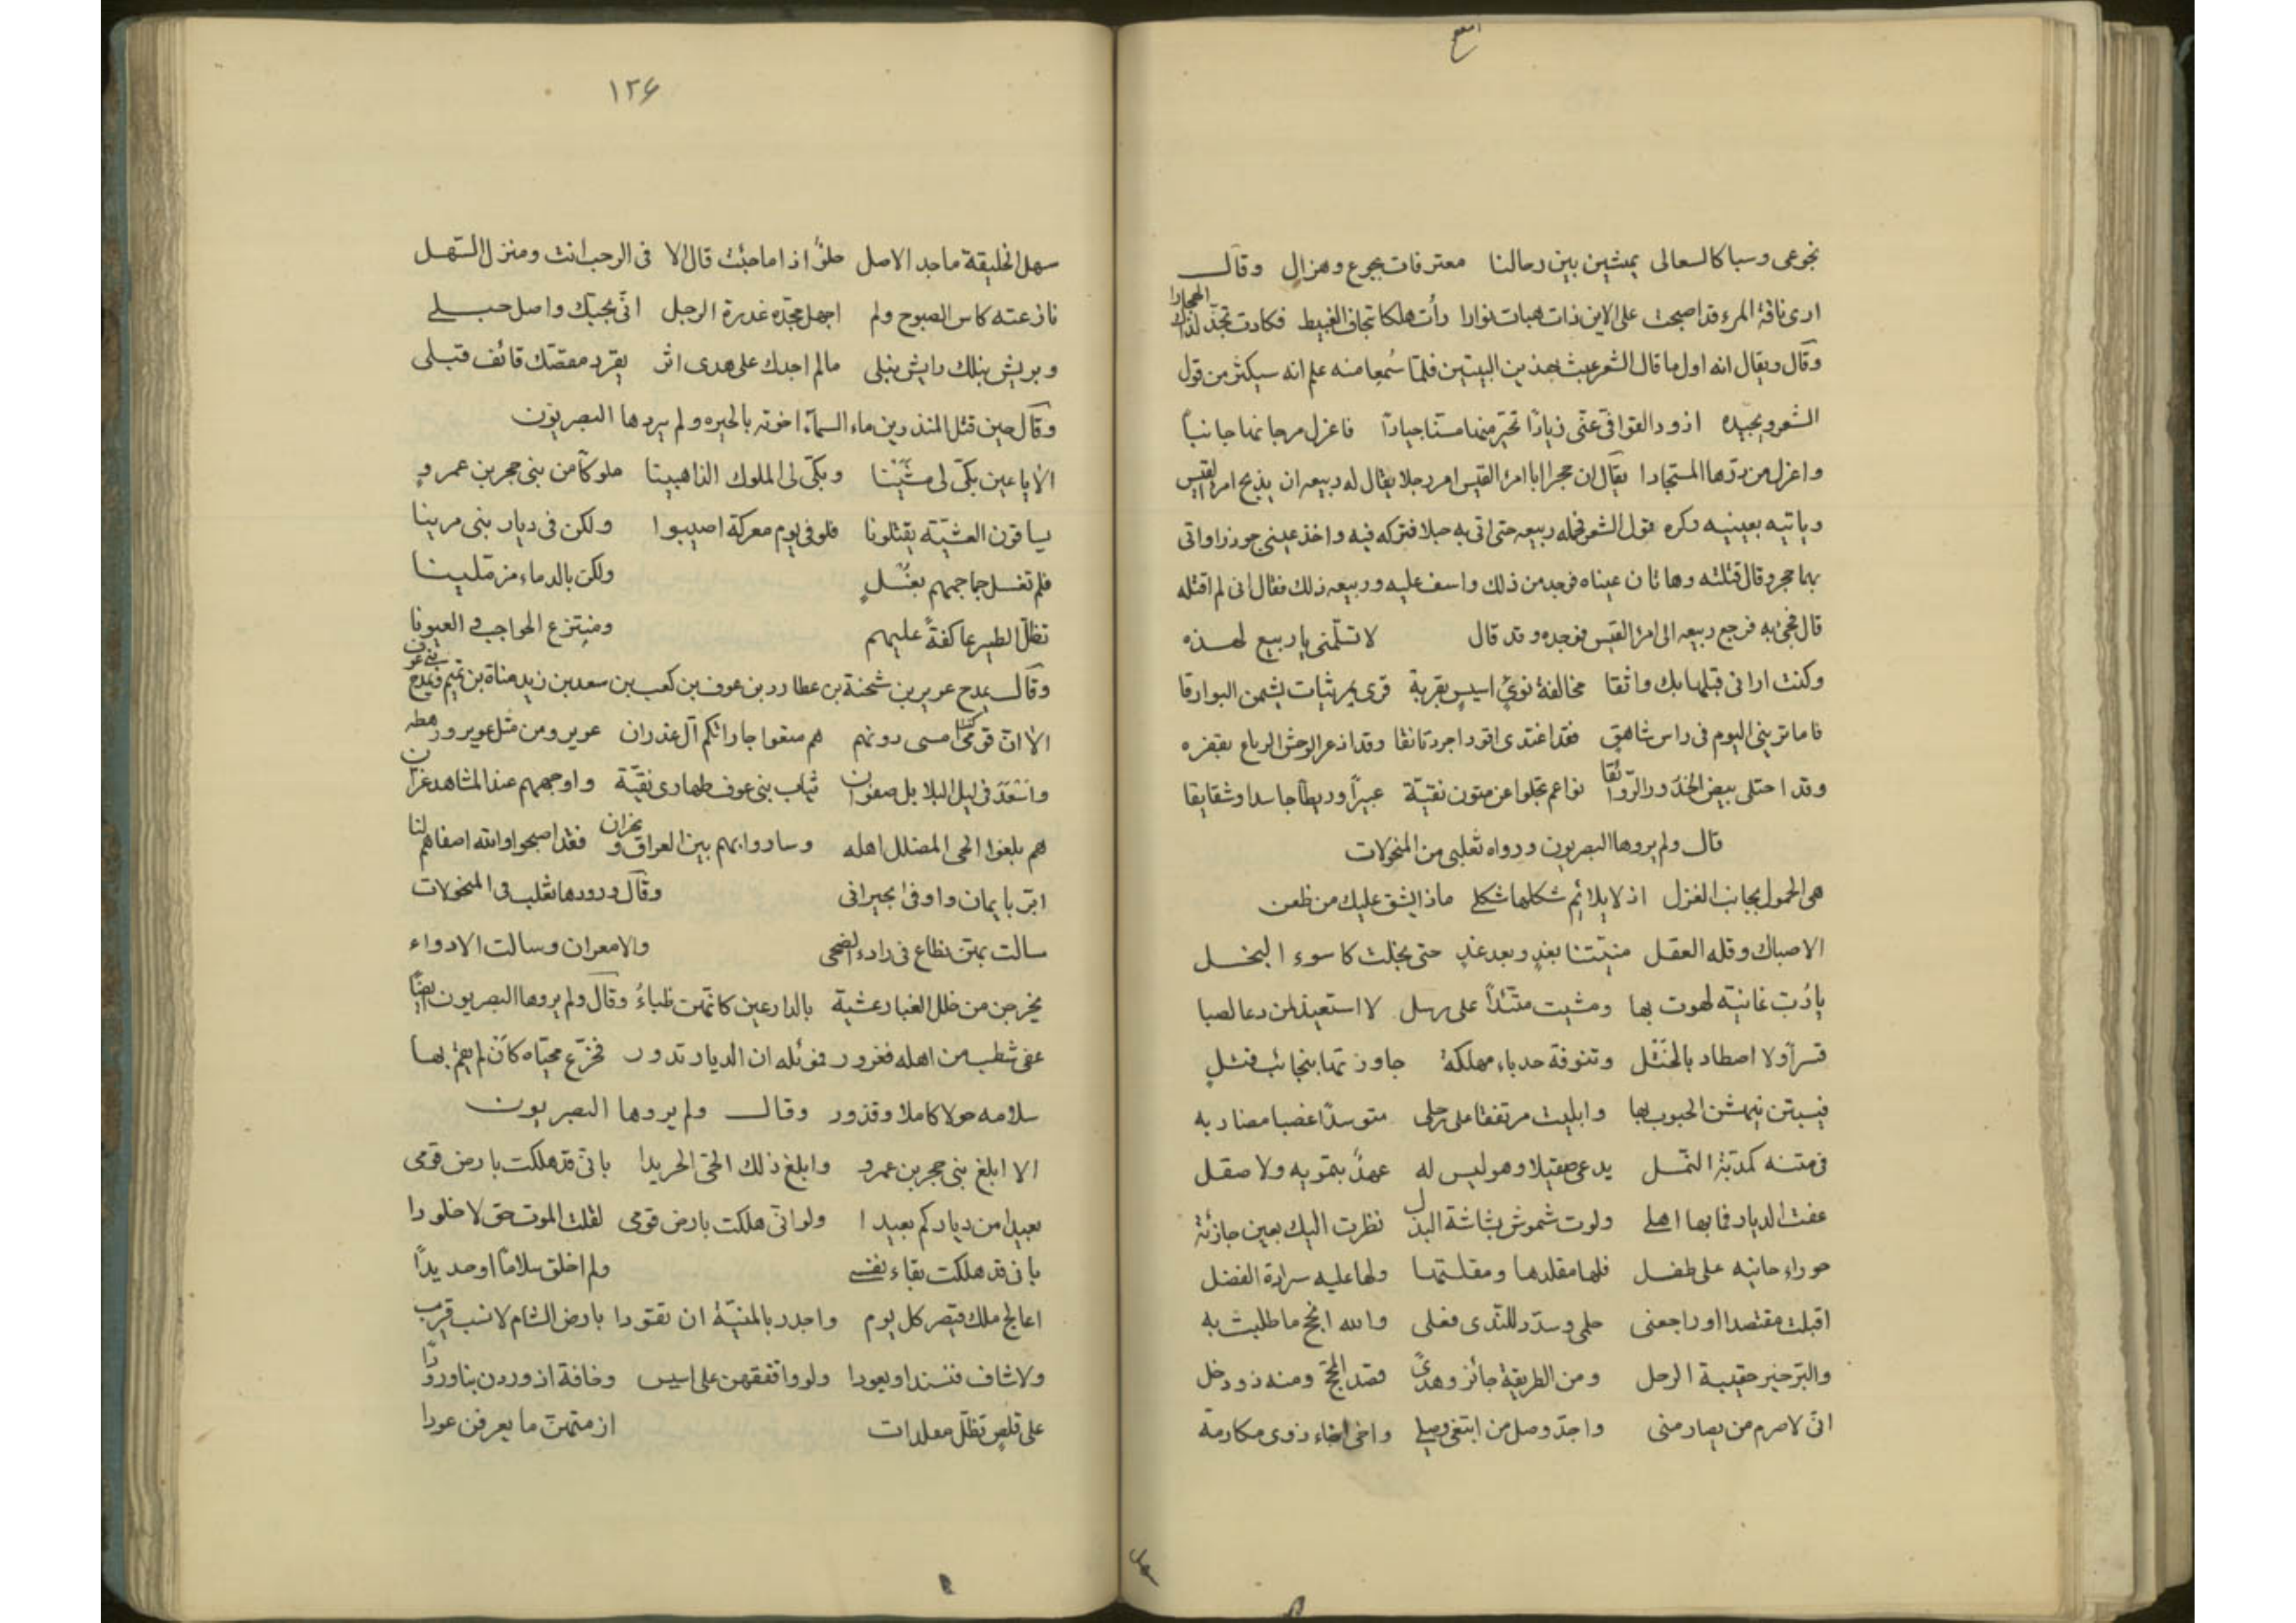 نجوعى وسبا كالسعالى يمشين بين رحالنا معترفات بجوع وهزال وقال
ارى ناقة المرء قد اصبحت على الاين ذات هبات نوارا رأت هلكا بنجاف الغبيط فكادت تجذ لذاك الهجارا
وقال ويقال انه اول ما قال الشعر عبث بهذين البيتين فلما سُمعا منه علم انه سيكثر من قول
الشعر ويجيده اذود القوافى عنى ذيادا تخير منها ستا جيادا فاعزل مرجانها جانبا
واعزل من درّها المستجادا يقال ان حجرا ابا امرئ القيس امر رجلا يقال له ربيعه ان يذبح امرا لقيس
وياتيه بعينيه وكره قول الشعر فحمله ربيعه حتى اتى به جبلا فتركه فيه واخذ عينى جوذر اواتى
بها حجر وقال قتلته وهاتان عيناه فوجد من ذلك واسف عليه وربيعه ذلك فقال انى لم اقتله
قال فجئ به فرجع ربيعه الى امرئ القيس فوجده وقد قال لا تسلّمنى يا ربيع لهذه
وكنت ارانى قبلها بك واثقا مخالفة نوئ اسيرٍ بقرية قرى عربيات يشمن البوارقا
فاما ترينى اليوم فى راس شاهق فقد اغتدى اقود اجرد تائقا وقد اذعر الوحش الرباع بقفره
وقد اجتلى بيض الخدور الرّوائقا نواعم تجلوا عن متون نقيّة عبيراً وريطا جاسدا وشقايقا
قال ولم يروها البصريون ورواه ثعلبى من المنحولات
هى الحمول بجانب العزل اذ لا يلائم شكلها شكلى ماذا يشق عليك من ظعن
الا صباك وقله العقل منيّتنا بغدٍ وبعد غدٍ حتى بخلت كاسوء البخل
يا رُبّ غانية لهوت بها ومشيت متئداً على رسل لا استعيذ لمن دعا لصبا
قسراً ولا اصطاد بالختل وتنوفة حدباء مهلكة جاوزتها بنجائب فتل
فيبتن ينهشن الجبوب بها وابيت مرتفقا على رحلى متوسدا عضبا مضاربه
فى متنه كمدبّة النّمل يدعى صقيلا وهو ليس له عهدٌ بتمويه ولا صقل
عفت الديار فما بها اهلى ولوت شموش بشاشة البذل نظرت اليك بعين جازئة
حوراء حانيه على طفل فلها مقلدها ومقلتها ولها عليه سراوة الفضل
اقبلت مقتصدا وراجعنى حلمى وسدّد للندى فعلى والله انجح ما طلبت به
والبرّ خير حقيبة الرحل ومن الطريقة جائز وهدىً قصد المحجّ ومنه ذو دخل
انى لاصرم من يصارمنى واجدّ وصل من ابتغى وصلى واخى اخاء ذوى مكارمة
١٢٦
سهل الخليقة ماجد الاصل حلوٌ اذا ما جئت قال الا فى الرحب انت ومنزل السّهل
نازعته كاس الصبوح ولم اجهل مجدّه غدرة الرجل انّى بحبّك واصل حبلى
وبريش نبلك رايش نبلى مالم اجدك على هدى اثر يقرو مقصّك قائف قبلى
وقال حين قتل المنذر بن ماء السمآء اخوته بالحيره ولم يروها البصريّون
الا يا عين بكّى لى شنينا وبكّى لى الملوك الذاهبينا ملوكاً من بنى حجر بن عمرو
يساقون العشيّة يقتلونا فلو فى يوم معركة اصيبوا ولكن فى ديار بنى مرينا
فلم تغسل جماجمهم بغسل ولكن بالدماء مزملينا
تظلّ الطير عاكفةً عليهم ومنتزع الحواجب والعيونا
وقال يمدح عوير بن شحنة بن عطارد بن عوف بن كعب بن سعد بن زيد مناة بن تميم ويمدح بنى عوف
الا ان قوما كنتم امسى دونهم هم منعوا جاراتكم آل غدران عوير ومن مثل عوير ورهطه
واسعد فى ليل البلابل صفوان ثياب بنى عوف طهارى نقيّة واوجههم عند المشاهد غرّان
هم بلغوا الحى المضلل اهله وساروا بهم بين العراق ونجران فقد اصبحوا والله اصفاهم لنا
ابرّ بايمان واوفى بجيرانى وقال ورودها ثعلب فى المنحولات
سالت بهتن نطاع فى راد الضحى والامعران وسالت الاوداء
يخرجن من خلل الغبار عشية بالدارعين كانهن ظباءُ وقال ولم يروها البصريون ايضًا
عفى شطب من اهله فغرور فموئله ان الديار تدور فجزع محيّاه كان لم يقم بها
سلامه حولا كاملا وقذور وقال ولم يروها البصريون
الا ابلغ بنى حجر بن عمرو وابلغ ذلك الحى الحريدا بانى قد هلكت بارض قومى
بعيدا من دياركم بعيدا ولو انى هلكت بارض قومى لقلت الموت حق لا خلودا
بانى قد هلكت بقاء نفسى ولم اخلق سلاما او حديداً
اعالج ملك قيصر كل يوم واجدر بالمنيّة ان تقودا بارض الشام لا نسب قريب
ولا شاف فيسندا ويعودا ولو وافقتهن على اسيس وخافة اذ وردن بنا ورودًا
على قلص تظلّ مقلدات ازمتهن ما يعرفن عودا
سهل